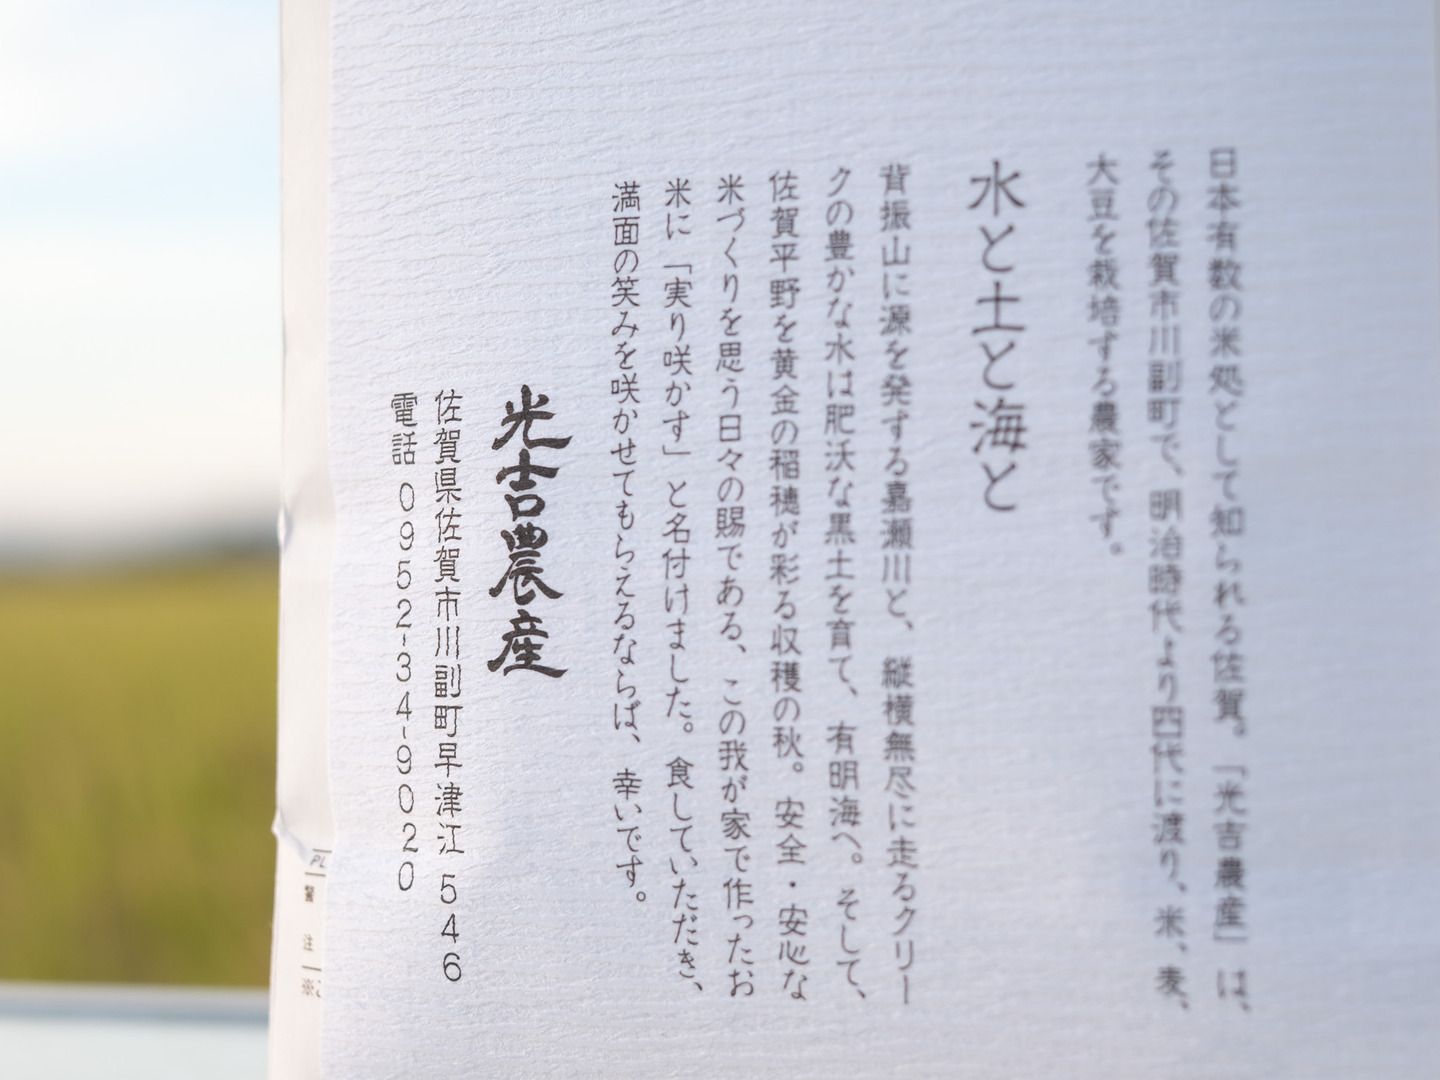 日本有数の米処として知られる佐賀。「光吉農産」は、
その佐賀市川副町で、明治時代より四代に渡り、米、麦、
大豆を栽培する農家です。
水と土と海と
背振山に源を発する嘉瀬川と、縦横無尽に走るクリー
クの豊かな水は肥沃な黒土を育て、有明海へ。そして、
佐賀平野を黄金の稲穂が彩る収穫の秋。安全・安心な
米づくりを思う日々の賜である、この我が家で作ったお
米に「実り咲かす」と名付けました。食していただき、
満面の笑みを咲かせてもらえるならば、幸いです。
光吉農産
佐賀県佐賀市川副町早津江546
電話 0952-34-9020
PL
警
注
※ご